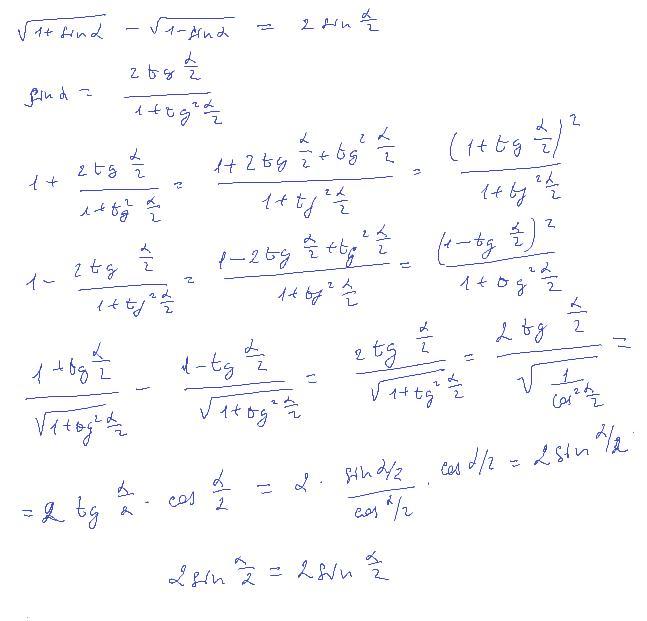 √(1+sinα) − √(1−sinα) = 2 sin α/2
sinα = (2 tg α/2)/(1+tg² α/2)
1 + (2 tg α/2)/(1+tg² α/2) = (1+2 tg α/2 + tg² α/2)/(1+tg² α/2) = (1+tg α/2)²/(1+tg² α/2)
1 − (2 tg α/2)/(1+tg² α/2) = (1−2 tg α/2 + tg² α/2)/(1+tg² α/2) = (1−tg α/2)²/(1+tg² α/2)
(1+tg α/2)/√(1+tg² α/2) − (1−tg α/2)/√(1+tg² α/2) = (2 tg α/2)/√(1+tg² α/2) = (2 tg α/2)/√(1/(cos² α/2)) =
= 2 tg α/2 · cos α/2 = 2 · (sin α/2)/(cos α/2) · cos α/2 = 2 sin α/2
2 sin α/2 = 2 sin α/2